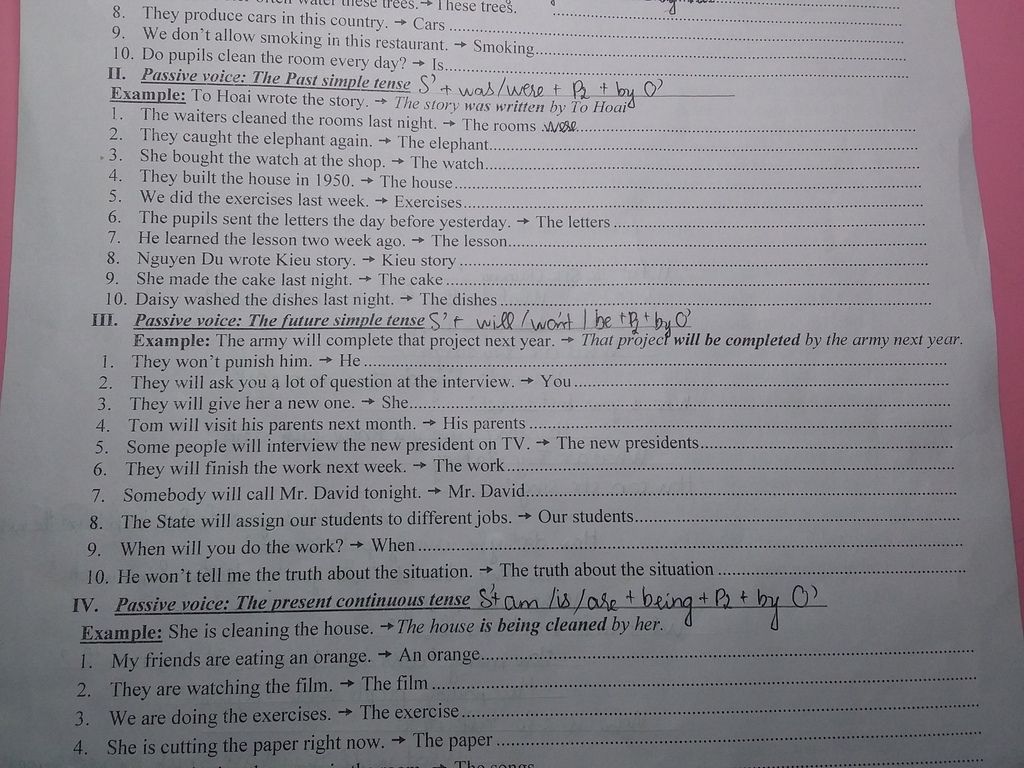 often water these trees.→ These trees.
8. They produce cars in this country. → Cars
9. We don't allow smoking in this restaurant. → Smoking
10. Do pupils clean the room every day? → Is
II. Passive voice: The Past simple tense S' + was/were + P2 + by O'
Example: To Hoai wrote the story. → The story was written by To Hoai
1. The waiters cleaned the rooms last night. → The rooms were
2. They caught the elephant again. → The elephant
3. She bought the watch at the shop. → The watch
4. They built the house in 1950. → The house
5. We did the exercises last week. → Exercises
6. The pupils sent the letters the day before yesterday. → The letters
7. He learned the lesson two week ago. → The lesson
8. Nguyen Du wrote Kieu story. → Kieu story
9. She made the cake last night. → The cake
10. Daisy washed the dishes last night. → The dishes
III. Passive voice: The future simple tense S' + will/won't / be + P2 + by O'
Example: The army will complete that project next year. → That project will be completed by the army next year.
1. They won't punish him. → He
2. They will ask you a lot of question at the interview. → You
3. They will give her a new one. → She
4. Tom will visit his parents next month. → His parents
5. Some people will interview the new president on TV. → The new presidents
6. They will finish the work next week. → The work
7. Somebody will call Mr. David tonight. → Mr. David
8. The State will assign our students to different jobs. → Our students
9. When will you do the work? → When
10. He won't tell me the truth about the situation. → The truth about the situation
IV. Passive voice: The present continuous tense S' + am /is /are + being + P2 + by O'
Example: She is cleaning the house. →The house is being cleaned by her.
1. My friends are eating an orange. → An orange
2. They are watching the film. → The film
3. We are doing the exercises. → The exercise
4. She is cutting the paper right now. → The paper
the room. → The songs